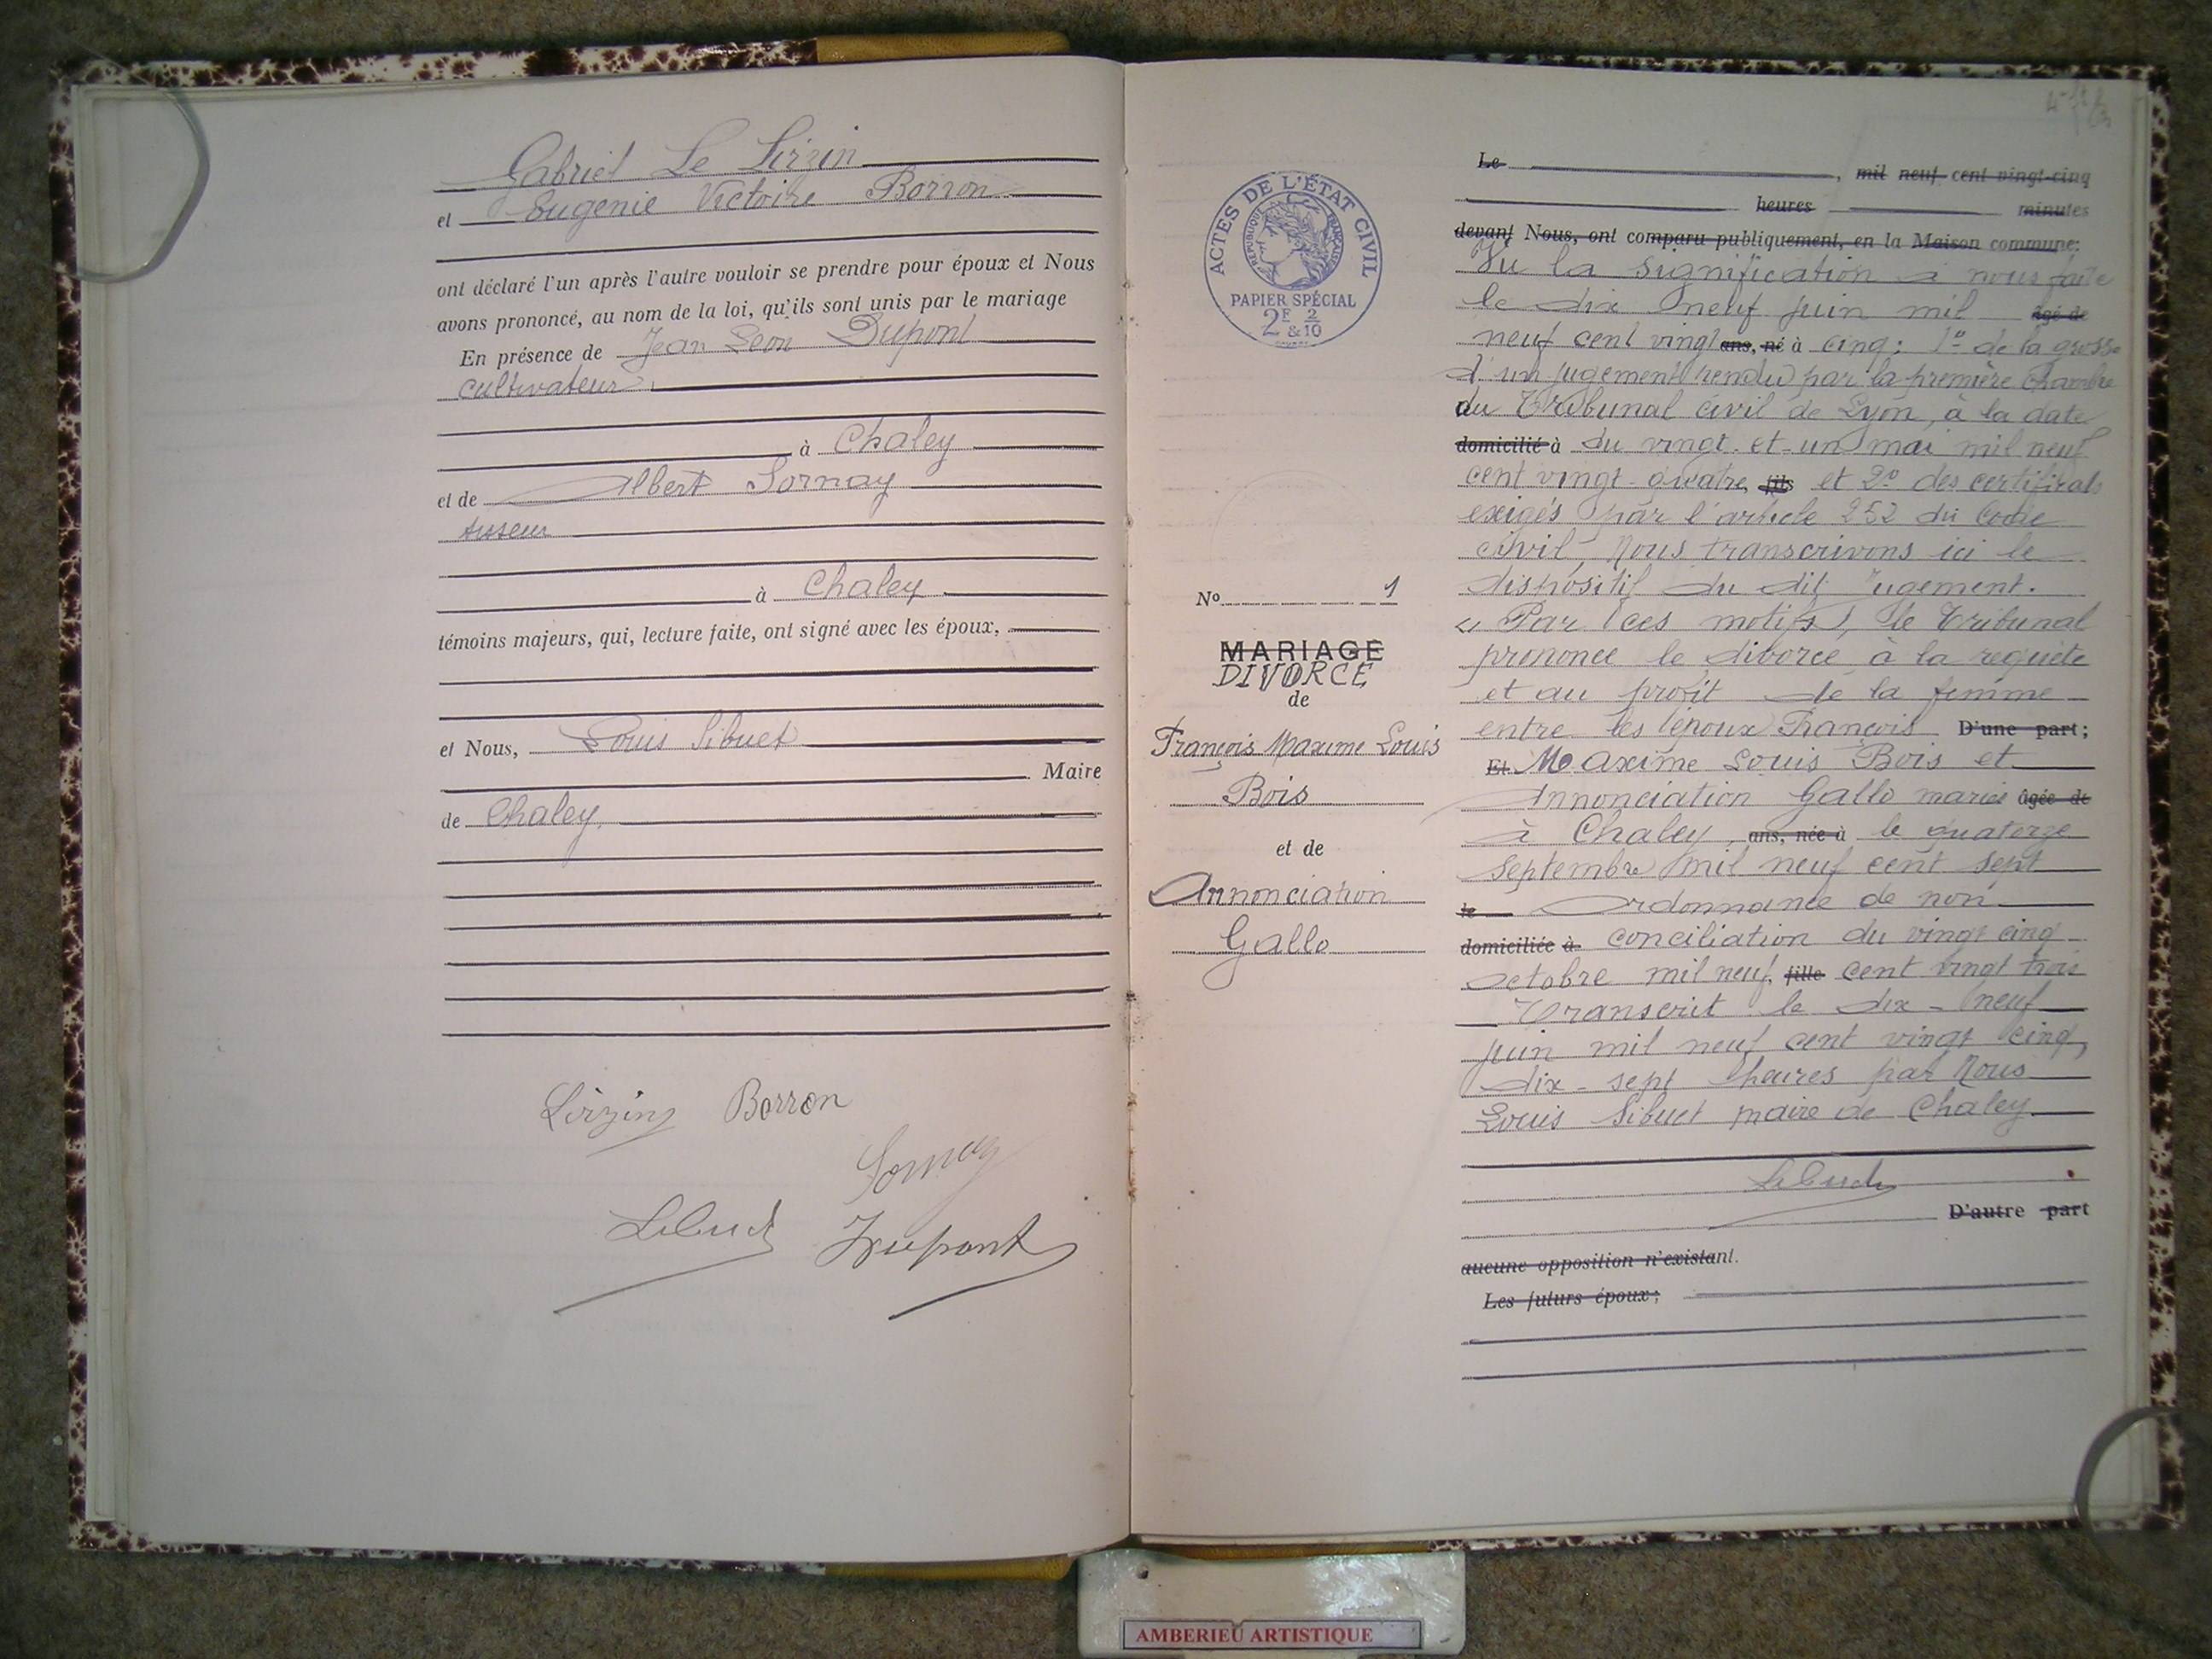 Gabriel Le Lirzin
et Eugenie Victoire Borron
ont déclaré l'un après l'autre vouloir se prendre pour époux et Nous
avons prononcé, au nom de la loi, qu'ils sont unis par le mariage
En présence de Jean Leon Dupont
cultivateur
à Chaley
et de Albert Sornay
tisseur
à Chaley
témoins majeurs, qui, lecture faite, ont signé avec les époux,
et Nous, Louis Sibuet
Maire
de Chaley,
Lirzin Borron
Sornay
Sibuet Dupont
ACTES DE L'ÉTAT CIVIL
RÉPUBLIQUE FRANÇAISE
PAPIER SPÉCIAL
2F 2
&10
No 1
MARIAGE
DIVORCE
de
François Maxime Louis
Bois
et de
Annonciation
Gallo
Le , mil neuf cent vingt-cinq
heures minutes
devant Nous, ont comparu publiquement, en la Maison commune:
Vu la signification à nous faite
le dix neuf juin mil âgé de
neuf cent vingt ans, né à cinq: 1º de la grosse
d'un jugement rendu par la première chambre
du Tribunal civil de Lyon, à la date
domicilié à du vingt-et-un mai mil neuf
cent vingt-quatre, fils et 2º des certificats
exigés par l'article 252 du Code
civil, Nous transcrivons ici le
dispositif du dit jugement.
« Par ces motifs, le Tribunal
prononce le divorce à la requete
et au profit de la femme
entre les époux François D'une part;
Et Maxime Louis Bois et
Annonciation Gallo mariés âgée de
à Chaley, ans, née à le quatorze
septembre mil neuf cent sept
le Ordonnance de non
domiciliée à conciliation du vingt cinq
octobre mil neuf, fille cent vingt trois
Transcrit le dix-neuf
juin mil neuf cent vingt cinq,
dix-sept heures par Nous
Louis Sibuet maire de Chaley.
Sibuet
D'autre part
aucune opposition n'existant.
Les futurs époux;
AMBERIEU ARTISTIQUE